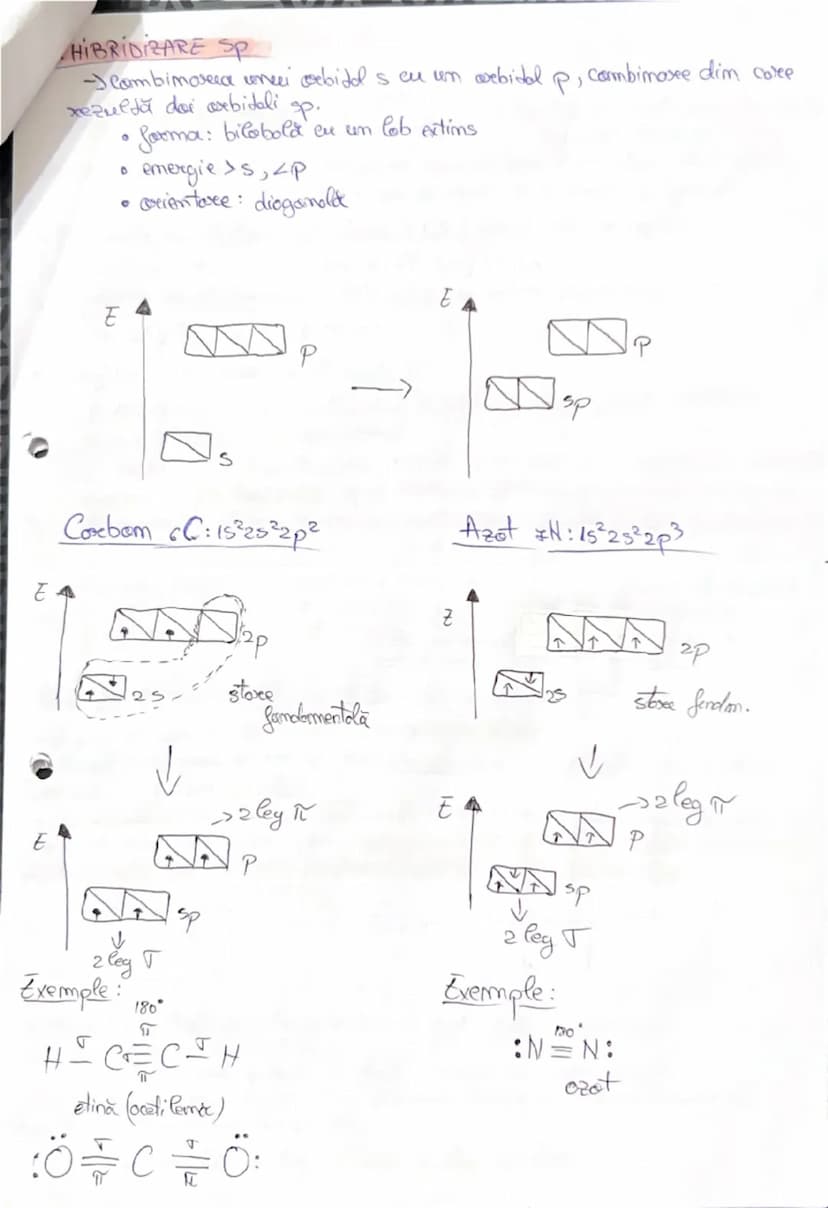 HIBRIDIZARE sp
→ Combinarea unui orbital s cu un orbital p, combinare din care
rezultă doi orbitali sp.
• forma: bilobală cu un lob extins
• energie > s, < p
• orientare: diagonală
E
p
s
→
E
p
sp
Carbon ₆C: 1s²2s²2p²
E
2p
2s
stare
fundamentală
E
→ 2 leg π
p
sp
2 leg σ
Exemple:
180°
σ π σ
H – C ≡ C – H
π
etină (acetilenă)
σ σ
:Ö = C = Ö:
π π
Azot ₇N: 1s²2s²2p³
E
2p
2s
stare fundam.
E
→ 2 leg π
p
sp
2 leg σ
Exemple:
180°
:N ≡ N:
azot